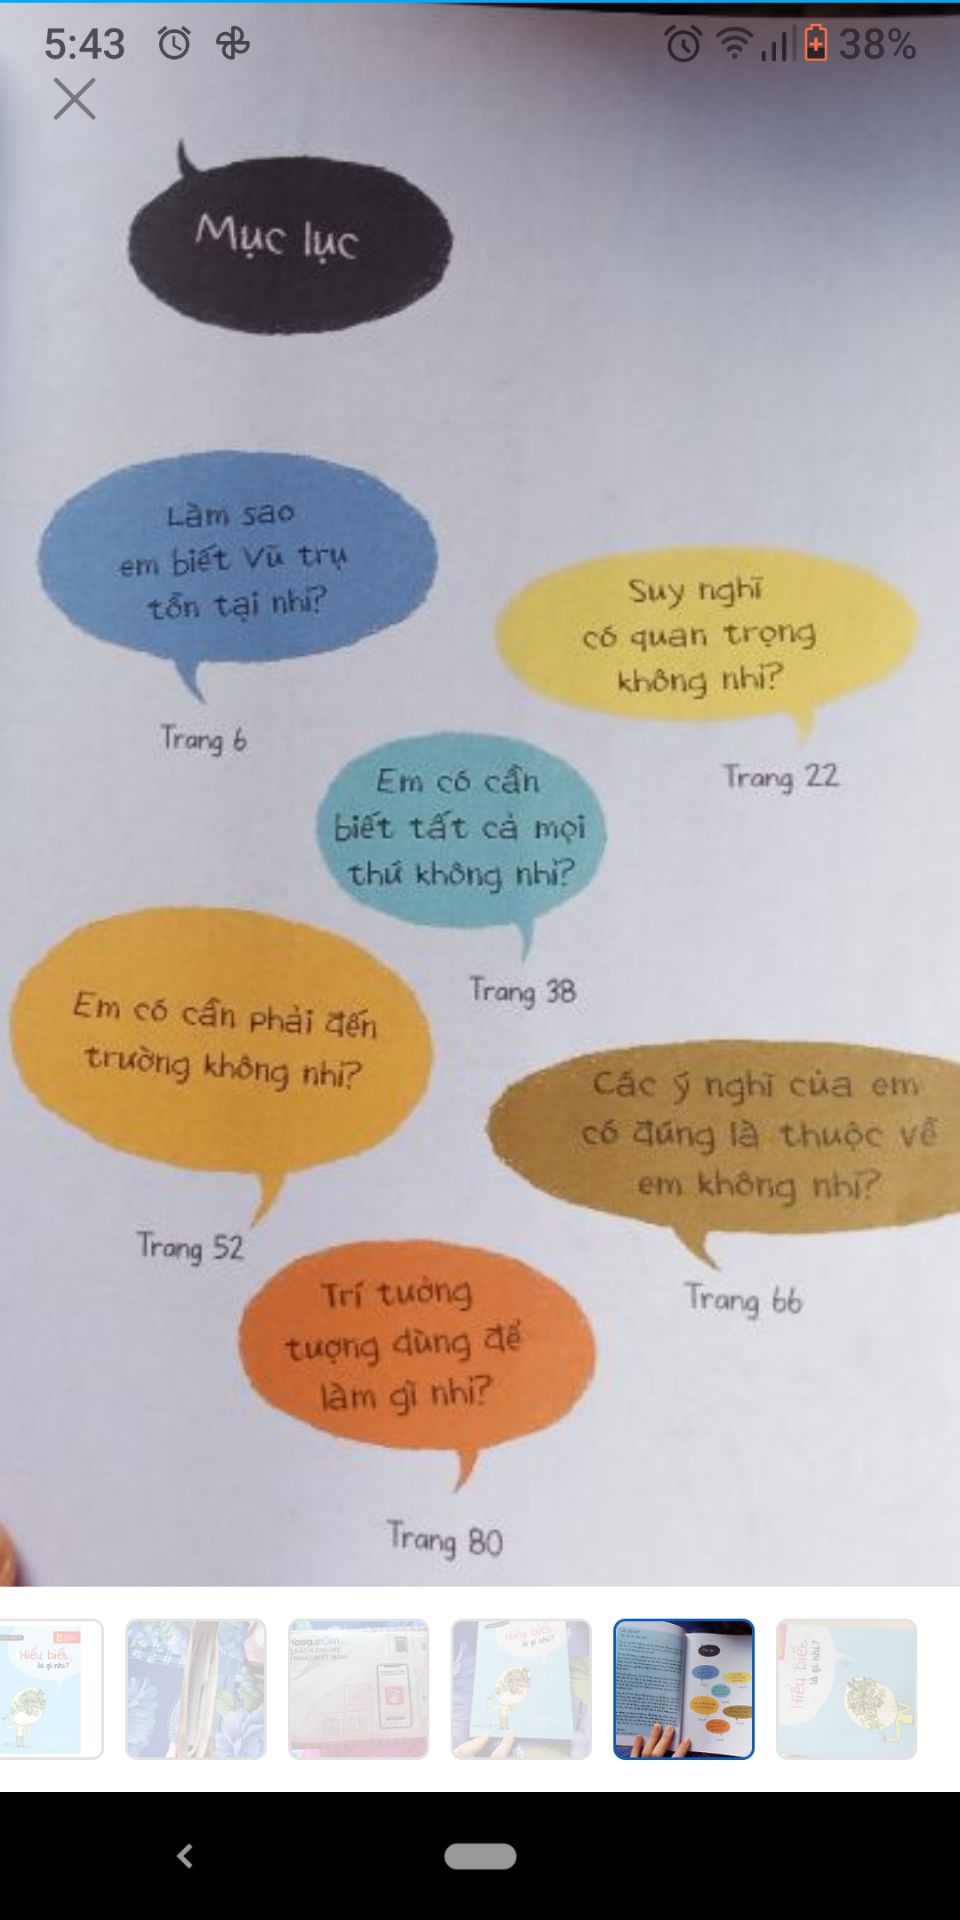 5:43
38%
Mục lục
Làm sao
em biết Vũ trụ
tồn tại nhỉ?
Trang 6
Suy nghĩ
có quan trọng
không nhỉ?
Trang 22
Em có cần
biết tất cả mọi
thứ không nhỉ?
Trang 38
Em có cần phải đến
trường không nhỉ?
Trang 52
Các ý nghĩ của em
có đúng là thuộc về
em không nhỉ?
Trang 66
Trí tưởng
tượng dùng để
làm gì nhỉ?
Trang 80
Hiểu biết
là gì nhỉ?
Hiểu biết
Hiểu biết
là gì nhỉ?